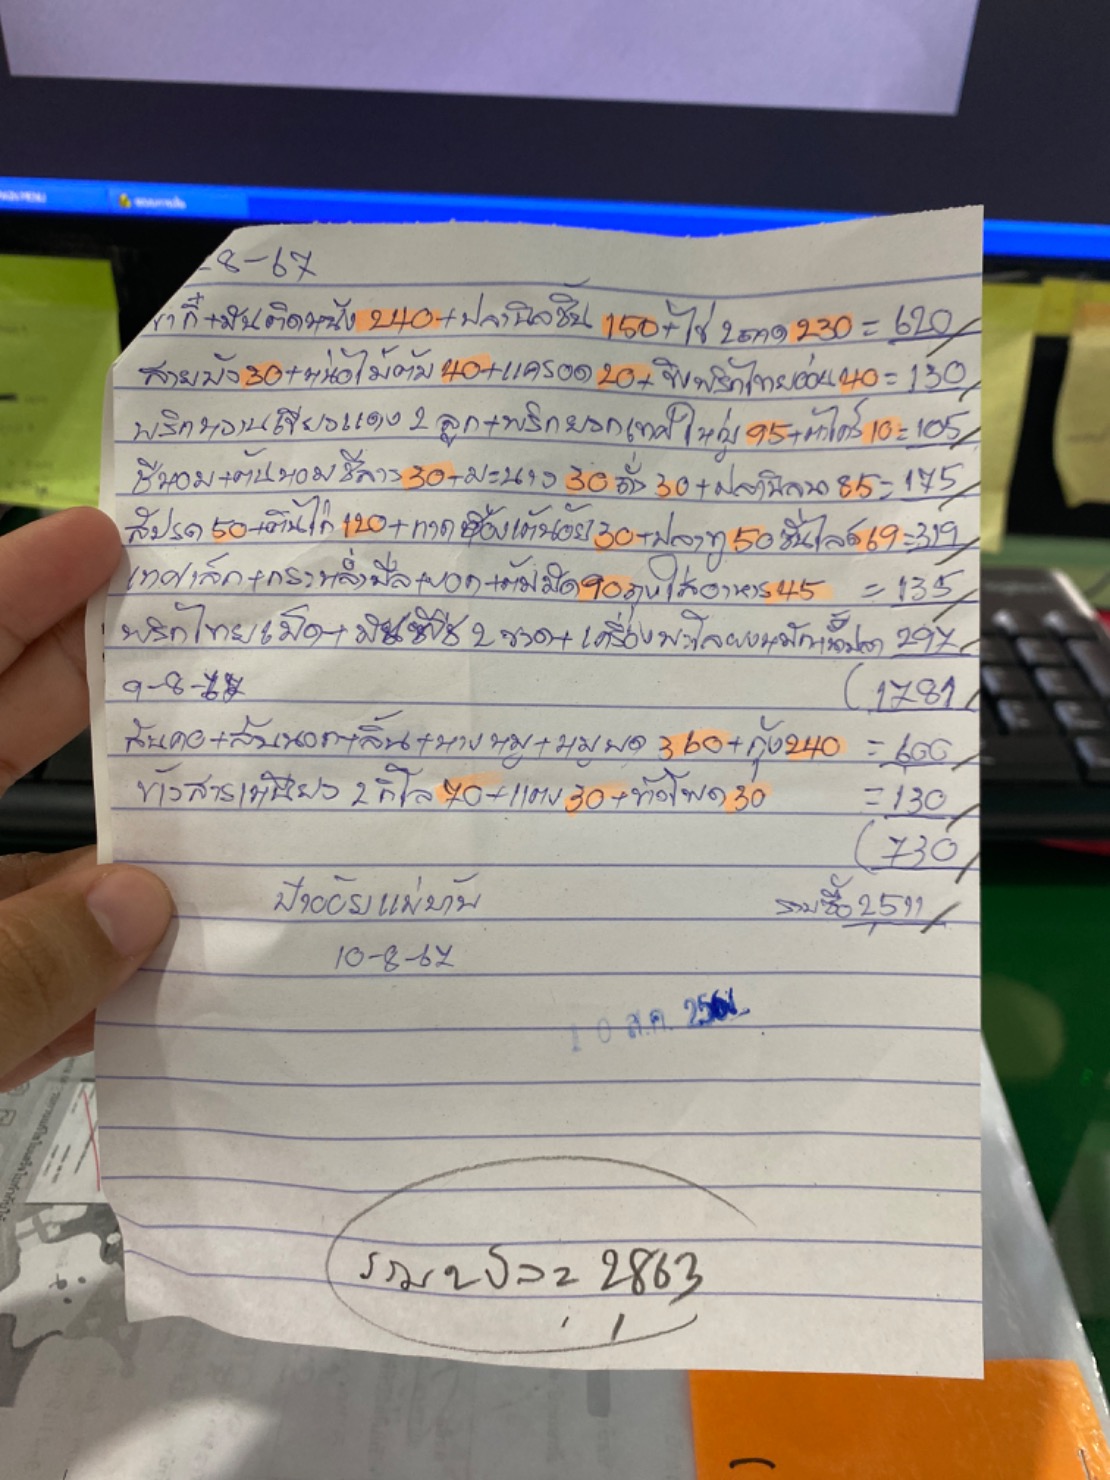 -8-67
ขากี้+มันติดหนัง 240+ปลานิลชิ้น 150+ไข่ 2ถาด 230 = 620
สายบัว 30+หน่อไม้ต้ม 40+แครอด 20+ขิงพริกไทยอ่อน 40 = 130
พริกหวานเขียวแดง 2 ลูก+พริกหยวกเทศใหญ่ 95+ตะไคร้ 10 = 105
ชีหอม+ต้นหอมชีลาว 30+มะนาว 30 ถั่ว 30+ปลานิล 85 = 175
สัปรด 50+ตีนไก่ 120+กาดต้นอ้อย 30+ปลาทู 50 ชิ่นไลด์ 69 = 319
เทศเล็ก+กะหล่ำปลี+ +ต้ม 90 ถุงใส่อาหาร 45 = 135
พริกไทยเม็ด+ 2 ขวด+เครื่องพะโล้ผงหมักน้ำปลา 297
9-8-67
(1781
สันคอ+สันนอก+ลิ้น+หางหมู+หมูบด 360+กุ้ง 240 = 600
ข้าวสารเหนียว 2 กิโล 70+แตง 30+ข้าวโพด 30 = 130
(730
ป้าอ้อยแม่บ้าน
รวมซื้อ 2511
10-8-67
10 ส.ค. 256
รวม 2 บิล = 2863